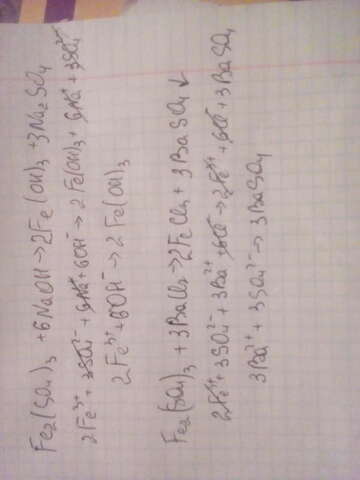 Fe₂(SO₄)₃ + 6NaOH → 2Fe(OH)₃ + 3Na₂SO₄
2Fe³⁺ + 3SO₄²⁻ + 6Na⁺ + 6OH⁻ → 2Fe(OH)₃ + 6Na⁺ + 3SO₄²⁻
2Fe³⁺ + 6OH⁻ → 2Fe(OH)₃
Fe₂(SO₄)₃ + 3BaCl₂ → 2FeCl₃ + 3BaSO₄↓
2Fe³⁺ + 3SO₄²⁻ + 3Ba²⁺ + 6Cl⁻ → 2Fe³⁺ + 6Cl⁻ + 3BaSO₄
3Ba²⁺ + 3SO₄²⁻ → 3BaSO₄